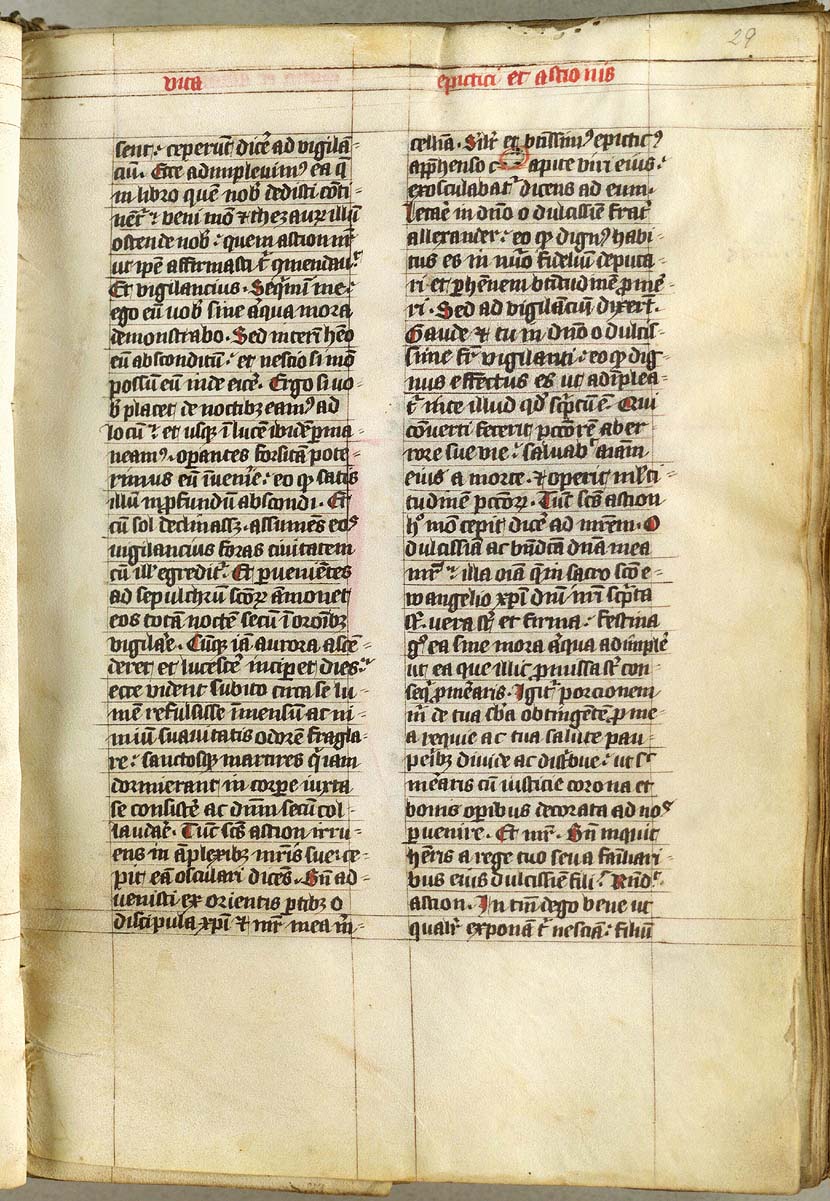 29
vita
epictici et astionis
sent: ceperūt dicē ad vigilā-
ciū. Ecce adimplevim⁹ ea q̄
in libro quē nob̄ dedisti cōti-
nēt᷑ ⁊ veni mō ⁊ thezauꝝ illū
ostende nob̄: quem astion nr̄
ut ip̄e affirmasti t᷑ ꝯmendav᷑.
Et vigilancius. Seq̄mī me:
ego eū vob̄ sine aliq̄ua mora
demonstrabo. Sed interī hēo
eū absconditū: et nescio si mō
possū eū inde eicē. Ergo si vo-
b̄ placet de noctibꝫ eam⁹ ad
locū: et usqꝫ ī lucē ibidē ꝑma-
neam⁹. oꝑantes forsitā pote-
rimus eū īvenire: eo ꝙ satis
illū in ꝓfundū abscondi. Et
cū sol declinassꝫ. assumēs eos
vigilancius foras civitatem
cū ill̓ egredit᷑. Et ꝑvenientes
ad sepulchrū scōꝝ āmonet
eos totā noctē secū ī orōnibꝫ
vigilare. Cūqꝫ iā aurora ascē-
deret et lucescē incipet dies:
ecce vident subito circa se lu-
mē refulsisse īmensū ac ni-
miū suavitatis odorē fragla-
re: sanctosqꝫ martires q̄ iam
dormierant in corꝑe iuxta
se consistē ac dn̄m secū col-
laudare. Tūc scs̄ astion irru-
ens in āplexibꝫ mr̄is sue: ce-
pit eā osculari dicēs. Bn̄ ad-
venisti ex orientis ꝑtibꝫ o
discipula xp̄i ⁊ mr̄ mea m̄-
cellīa. Silr̄ et btissim⁹ epictic⁹
app̄henso c apite viri eius:
exosculabat᷑ dicens ad eum.
Letare in dn̄o o dulcissiē frat᷑
allexander: eo ꝙ dign⁹ habi-
tus es in nūo fideliū deputa-
ri et ꝑhēnem btitudinē ꝓmē-
ri. Sed ad vigilanciū dixert̄.
Gaude ⁊ tu in dn̄o o dulcis-
sime fr̄ vigilanti: eo ꝙ dig-
nus effectus es ut adīplea-
t᷑ in te illud qd̓ sc̄ptū ē. Qui
cōverti fecerit pctōrē ab er-
rore sue vie: salvab᷑ aīam
eius a morte. ⁊ operit ml̓ti-
tudinē pctōꝝ. Tūc scs̄ astion
hº mō cepit dicē ad mr̄em. O
dulcissīa ac bn̄dcā dn̄a mea
mr̄: illa oīa q̄ in sacro scō e-
wangelio xp̄i dn̄i nr̄i sc̄pta
st̄. vera st̄ et firma: festina
gº ea sine mora aliq̄ua adimplē
ut ea que illic ꝓmissa st̄ con-
seq̄ ꝓmēraris. Igit᷑ porcionem
m̄ de tua sb̄a obtingētē ꝓ me-
a requie ac tua salute pau-
peribꝫ divide ac distribue: ut sic
mēraris cū iusticie corona et
bonis operibus decorata ad nos
ꝑvenire. Et mr̄. Bn̄ inquit
hēris a rege tuo seu a familiari-
bus eius dulcissiē fili: Rn̄d᷑.
astion. In tm̄ dego bene ut
qualr̄ exponā t᷑ nesciā: filiū